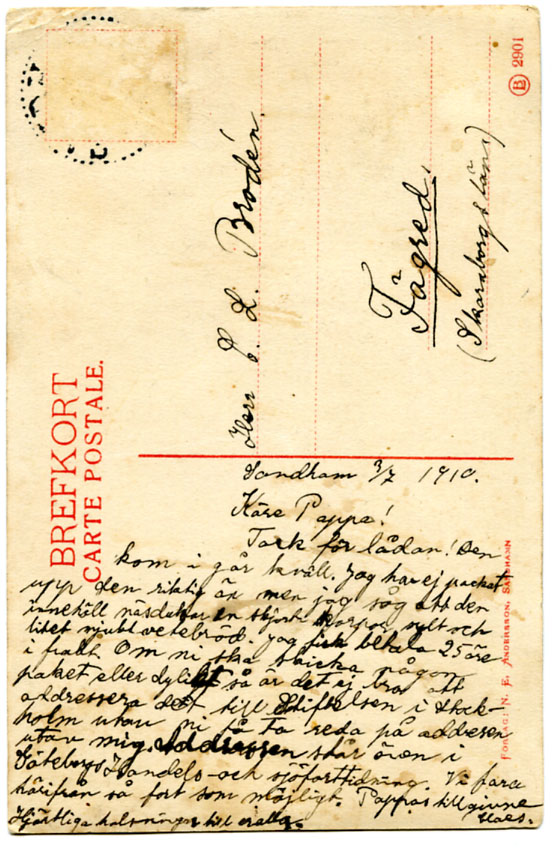 BREFKORT
CARTE POSTALE.
B 2901
Herr C. L. Brodén.
Fägred.
(Skaraborgs län)
Sandhamn 3/7 1910.
Käre Pappa!
Tack för lådan! Den
kom i går kväll. Jag har ej packat
upp den riktig än men jag såg att den
innehåll näsdukar en skjorta skorpor sylt och
litet mjukt vetebröd. Jag fick betala 25 öre
i frakt Om ni ska skicka någon
paket eller dylikt så är det ej bra att
addressera det till Stiftelsen i Stock-
holm utan ni få ta reda på adressen
utav mig. Addressen står även i
Göteborgs Handels- och sjöfarttidning. Vi fara
härifrån så fort som möjligt. Pappas tillgivne
Hjärtliga hälsningar till eralla. Claes.
FÖRLAG: N. E. ANDERSSON, SANDHAMN